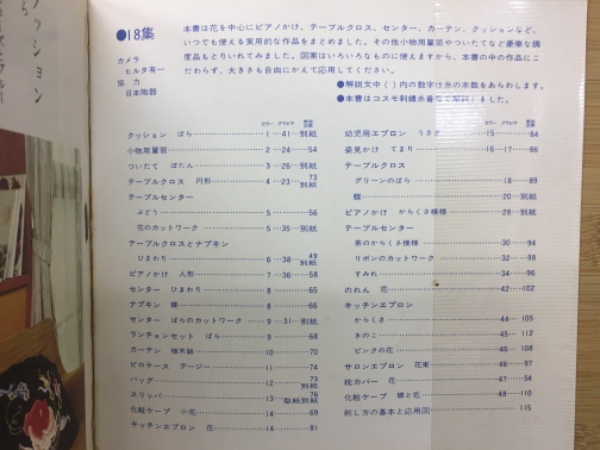 ●18集
カメラ
ヒルタ有一
協力
日本陶器
本書は花を中心にピアノかけ、テーブルクロス、センター、カーテン、クッションなど、
いつでも使える実用的な作品をまとめました。その他小物用簞笥やついたてなど豪華な調
度品もとりいれてみました。図案はいろいろなものに使えますから、本書の中の作品にこ
だわらず、大きさも自由にかえて応用してください。
●解説文中( )内の数字は糸の本数をあらわします。
●本書はコスモ刺繡糸番号で解説しました。
カラー グラビヤ 解説図案
クッション ばら 1 41 別紙
小物用簞笥 2 24 54
ついたて ぼたん 3 26 別紙
テーブルクロス 円形 4 23 73別紙
テーブルセンター
ぶどう 5 56
花のカットワーク 5 35 別紙
テーブルクロスとナプキン
ひまわり 6 38 49別紙
ピアノかけ 人形 7 36 58
センター ひまわり 8 65
ナプキン 蝶 8 66
センター ばらのカットワーク 9 31 別紙
ランチョンセット ばら 9 68
カーテン 植木鉢 10 70
ピロケース デージー 11 74
バッグ 12 73別紙
スリッパ 13 76型紙別紙
化粧ケープ 小花 14 69
キッチンエプロン 花 14 81
カラー グラビヤ 解説図案
幼児用エプロン うさぎ 15 84
姿見かけ てまり 16 17 86
テーブルクロス
グリーンのばら 18 89
蝶 20 別紙
ピアノかけ からくさ模様 28 別紙
テーブルセンター
茶のからくさ模様 30 94
リボンのカットワーク 32 98
すみれ 34 96
のれん 花 42 102
キッチンエプロン
からくさ 44 105
きのこ 45 112
ピンクの花 46 108
サロンエプロン 花束 46 97
枕カバー 花 47 54
化粧ケープ 蝶と花 48 110
刺し方の基本と応用図 115
クッション